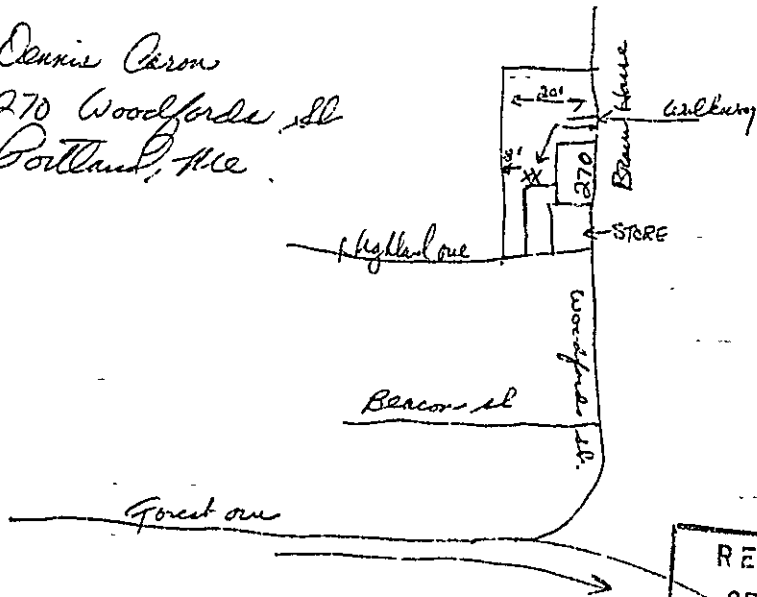 Dennis Caron
270 Woodfords St
Portland, Me.
20'
8'
XX
270
Brown House
walkway
STORE
Highland ave
Woodfords St.
Beacon st
Forest ave
RE